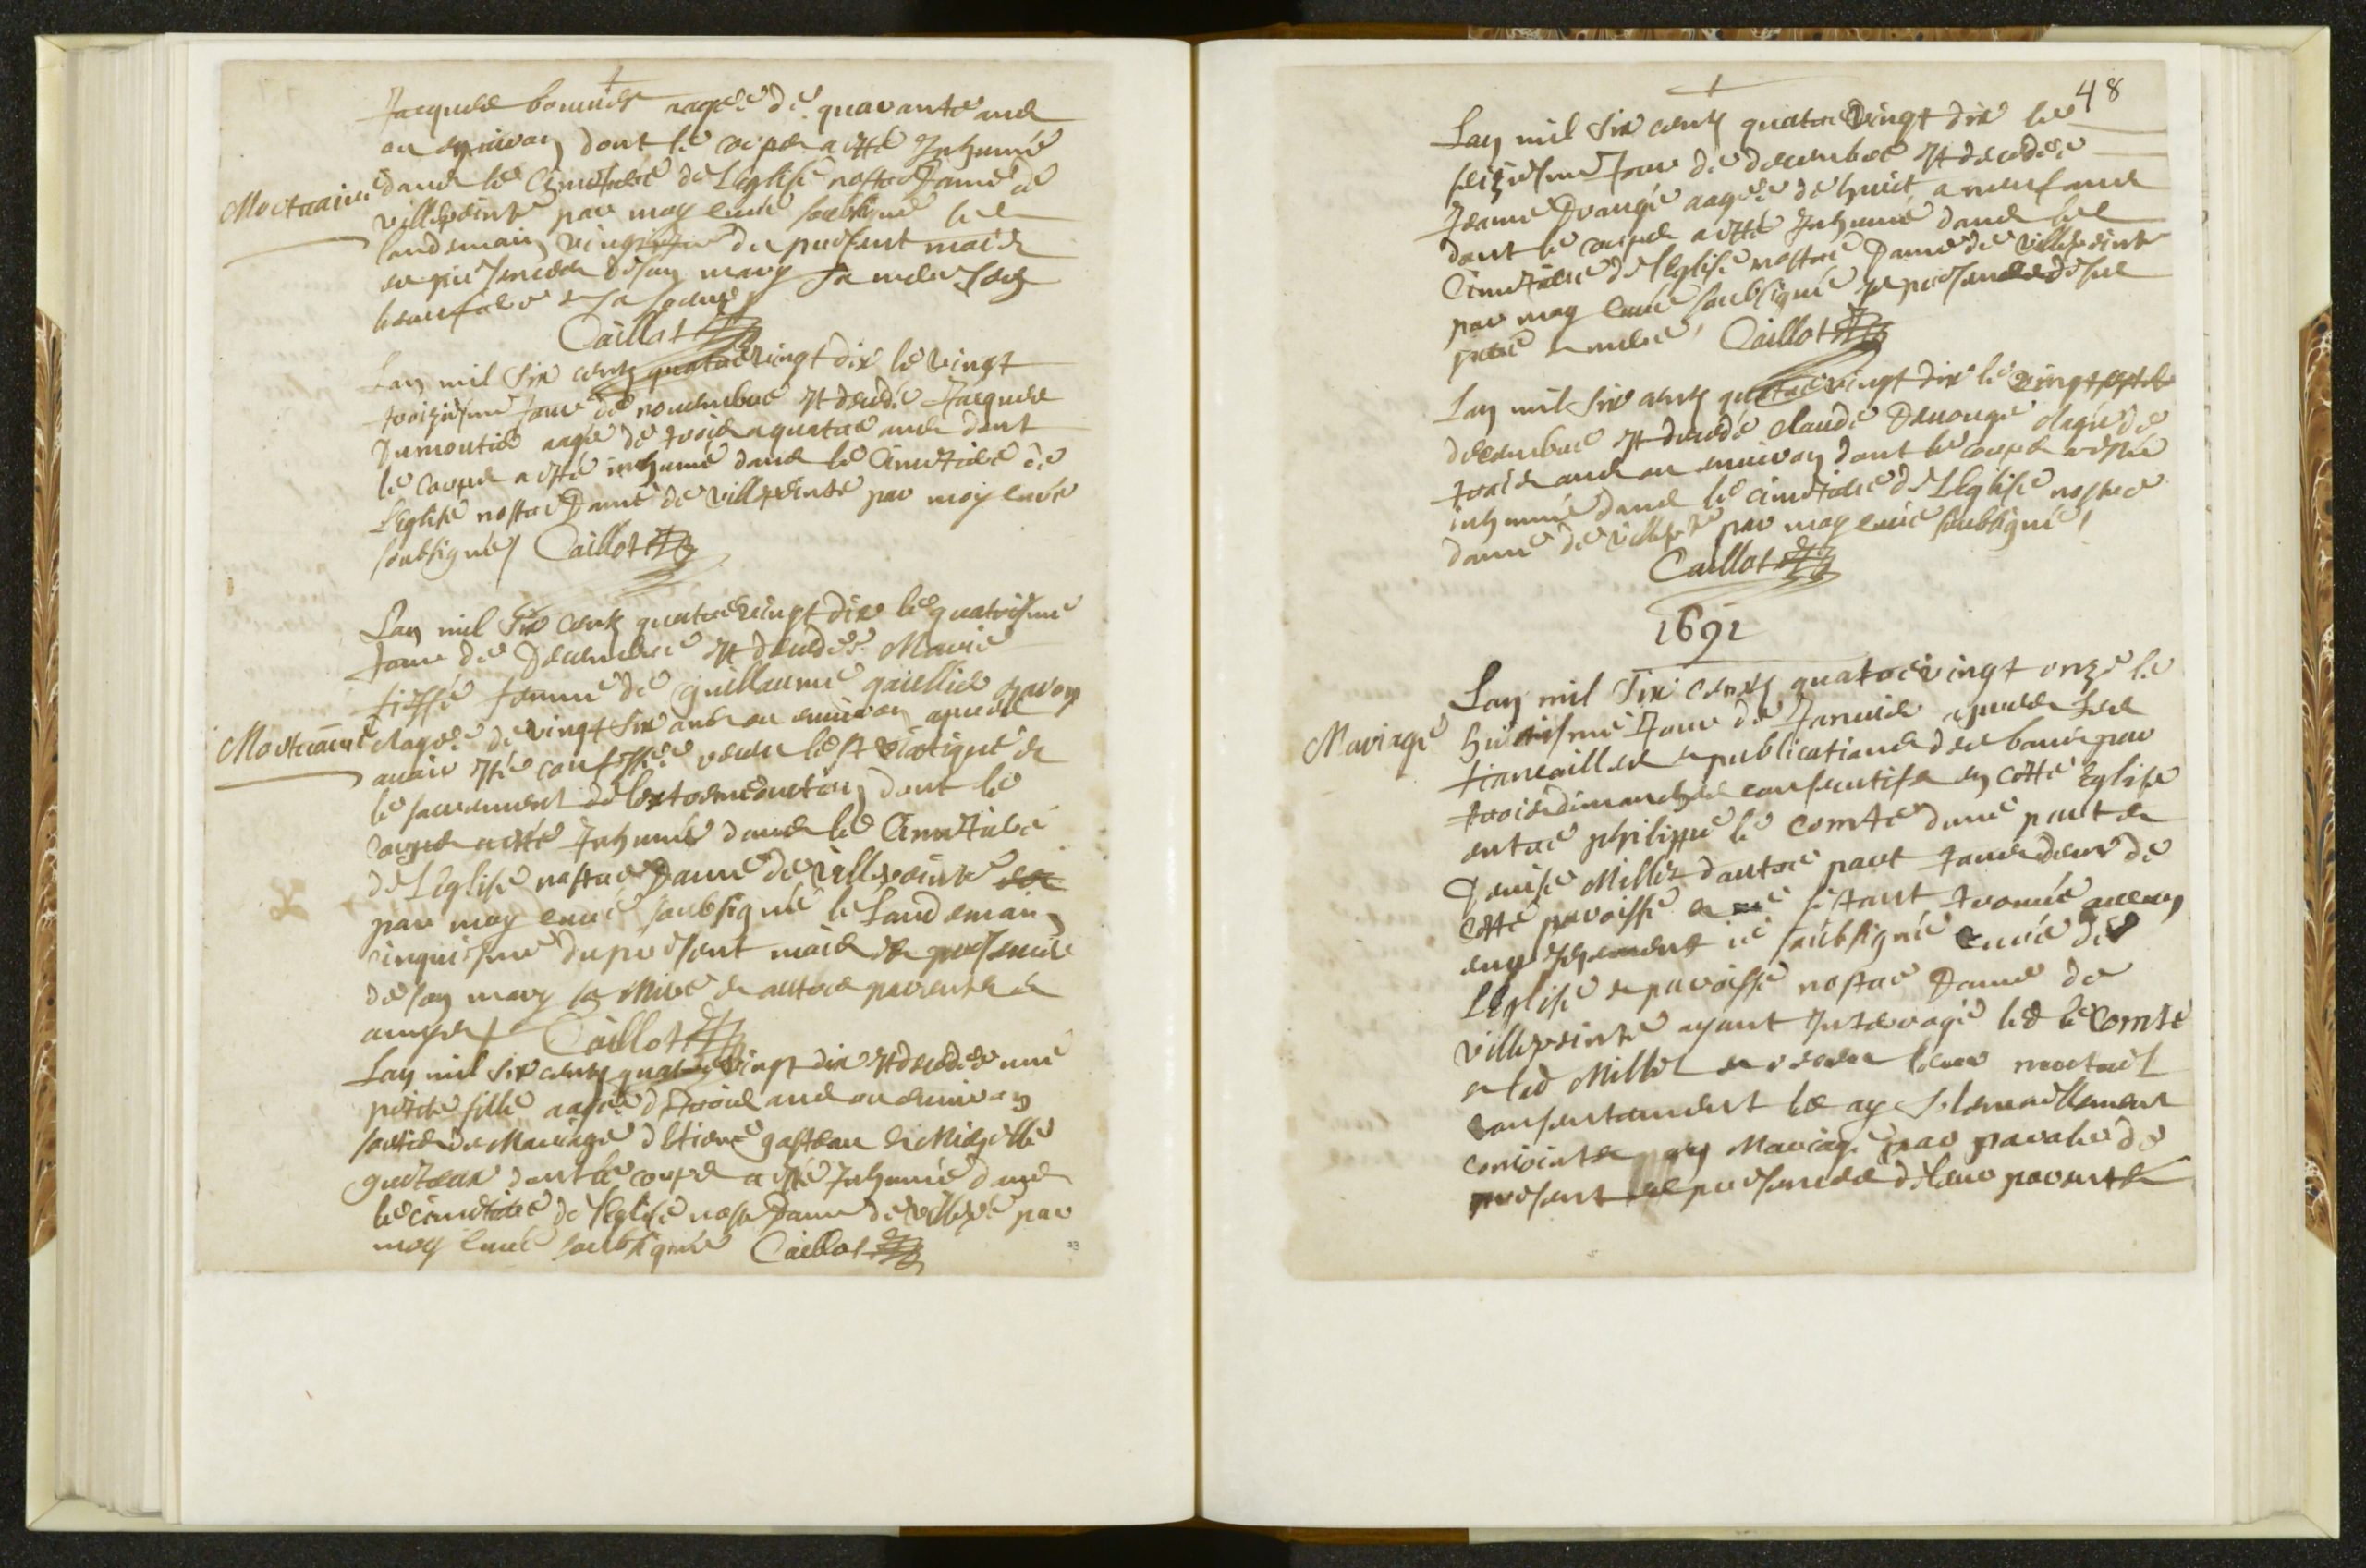 Jacques aagée de quarante ans
ou environ dont le corps a esté Inhumé
Mortuaire dans le Cimetiere de L'eglise nostre Dame de
villepeinte par moy curé soubsigné le
landemain du present mois
en presences de son mary sa mere son
beaufrere et sa soeur
Caillot
Lan mil six cents quatre vingt dix le vingt
troiziesme jour de novembre est decedé Jacques
Dumontier aagé de trois a quatre ans dont
le corps a esté inhumé dans le Cimetiere de
L'Eglise nostre Dame de villepeinte par moy curé
soubsigné / Caillot
Lan mil six cents quatre vingt dix le quatriesme
Jour de Decembre est decedée Marie
fieffé femme de guillaume
Mortuaire aagée de vingt six ans ou environ apres
avoir esté confessée receu le st viatique et
le sacrement de lextremeonction dont le
corps a esté Inhumé dans le Cimetiere
de L'Eglise nostre Dame de villepeinte
par moy curé soubsigné le Landemain
cinquiesme du present mois en presence
de son mary sa Mere et autres parents et
amys / Caillot
Lan mil six cents quatre vingt dix est decedée une
petite fille aagée de trois ans ou environ
sortie du Mariage detiene gasteau et
dont le corps a esté Inhumé dans
le cimetiere de l'eglise nostre Dame de villepte par
moy curé soubsigné Caillot
48
Lan mil six cents quatre vingt dix le
seiziesme Jour de decembre est decedée
Jeanne aagée de huict a neuf ans
dont le corps a esté Inhumé dans le
Cimetiere de l'Eglise nostre Dame de villepeinte
par moy curé soubsigné en presences de ses
pere et mere / Caillot
Lan mil six cents quatre vingt dix le vingt sept de
decembre est decedé claude aagé de
trois ans ou environ dont le corps a esté
inhumé dans le cimetiere de L'Eglise nostre
dame de villepte par moy curé soubsigné /
Caillot
1691
Lan mil Six cents quatre vingt onze le
Mariage huictiesme Jour de Janvier apres les
fiancailles et publications des bans par
trois dimanches consecutifs en cette Eglise
entre philippe le comte dune part et
Denise Millet dautre part tous deux de
cette paroisse et ne sestant trouvé aucun
empeschement ie soubsigné curé de
L'Eglise et paroisse nostre Dame de
villepeinte ayant Interrogé led le Comte
et lad Millet et receu leur mutuel
consentement les ay solemnellement
conioints en Mariage par paroles de
present en presences de leur parents